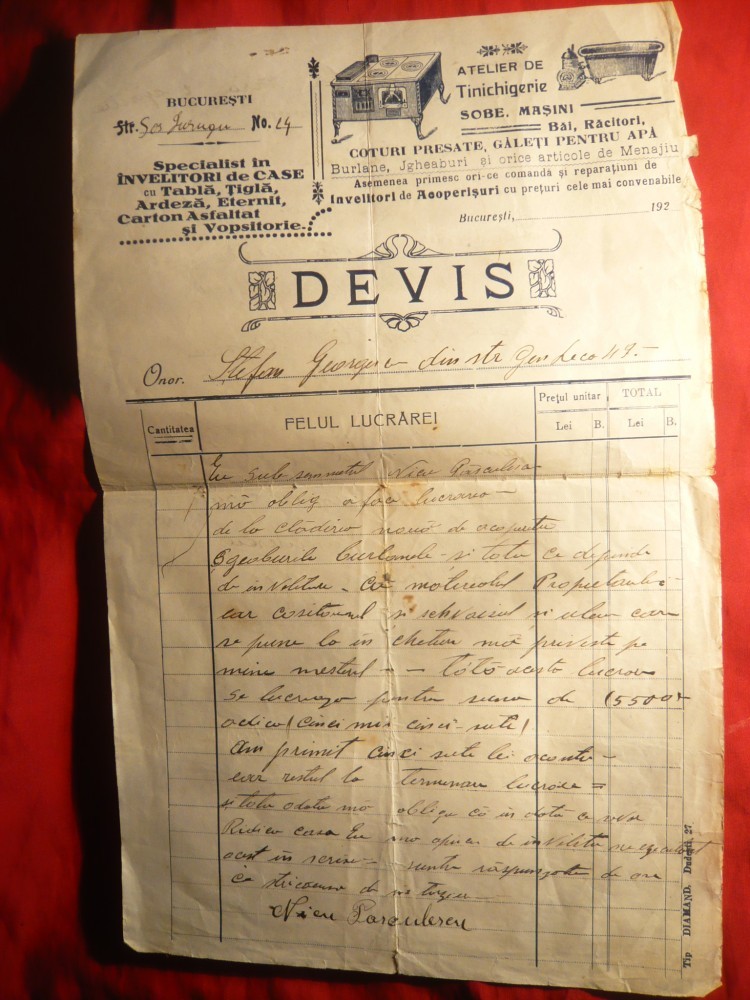 BUCUREȘTI
Str. Șos Giurgiu No. 24
Specialist în
ÎNVELITORI de CASE
cu Tablă, Țiglă,
Ardeză, Eternit,
Carton Asfaltat
și Vopsitorie.
ATELIER DE
Tinichigerie
SOBE. MAȘINI
Băi, Răcitori,
COTURI PRESATE, GĂLEȚI PENTRU APĂ
Burlane, Jgheaburi și orice articole de Menajiu
Asemenea primesc ori-ce comandă și reparațiuni de
Invelitori de Acoperișuri cu prețuri cele mai convenabile
București, 192
DEVIS
Onor. Stefan George din str Gen 119.-
Cantitatea
FELUL LUCRĂREI
Prețul unitar
TOTAL
Lei B. Lei B.
Eu sub semnatul Nicu
mă oblig a face lucrarea
de la clădirea nouă de acoperitu
burlanele și totu ce depinde
de înveliture - cu
iar cositorul și și
se pune la mă priveste pe
mine mesterul - - tótă acesta lucrare
se lucreaza pentru suma de (5500
adica (cinci mii cinci sute)
Am primit cinci sute lei aconto -
iar restul la terminare lucrare =
și totu odata mă oblig că în data ce
Ridica casa Eu mă de învelitu
acest în scris -
de
Nicu Parculescu
Tip DIAMAND, Dudești, 27